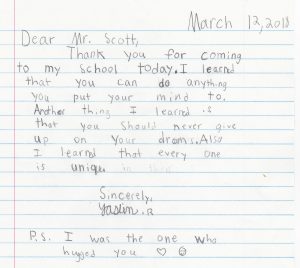 March 12, 2018
Dear Mr. Scott,
Thank you for coming
to my school today. I learned
that you can do anything
you put your mind to.
Another thing I learned is
that you should never give
up on your drams. Also
I learned that every one
is unique in
Sincerely,
P.S. I was the one who
hugged you ♡ ☺